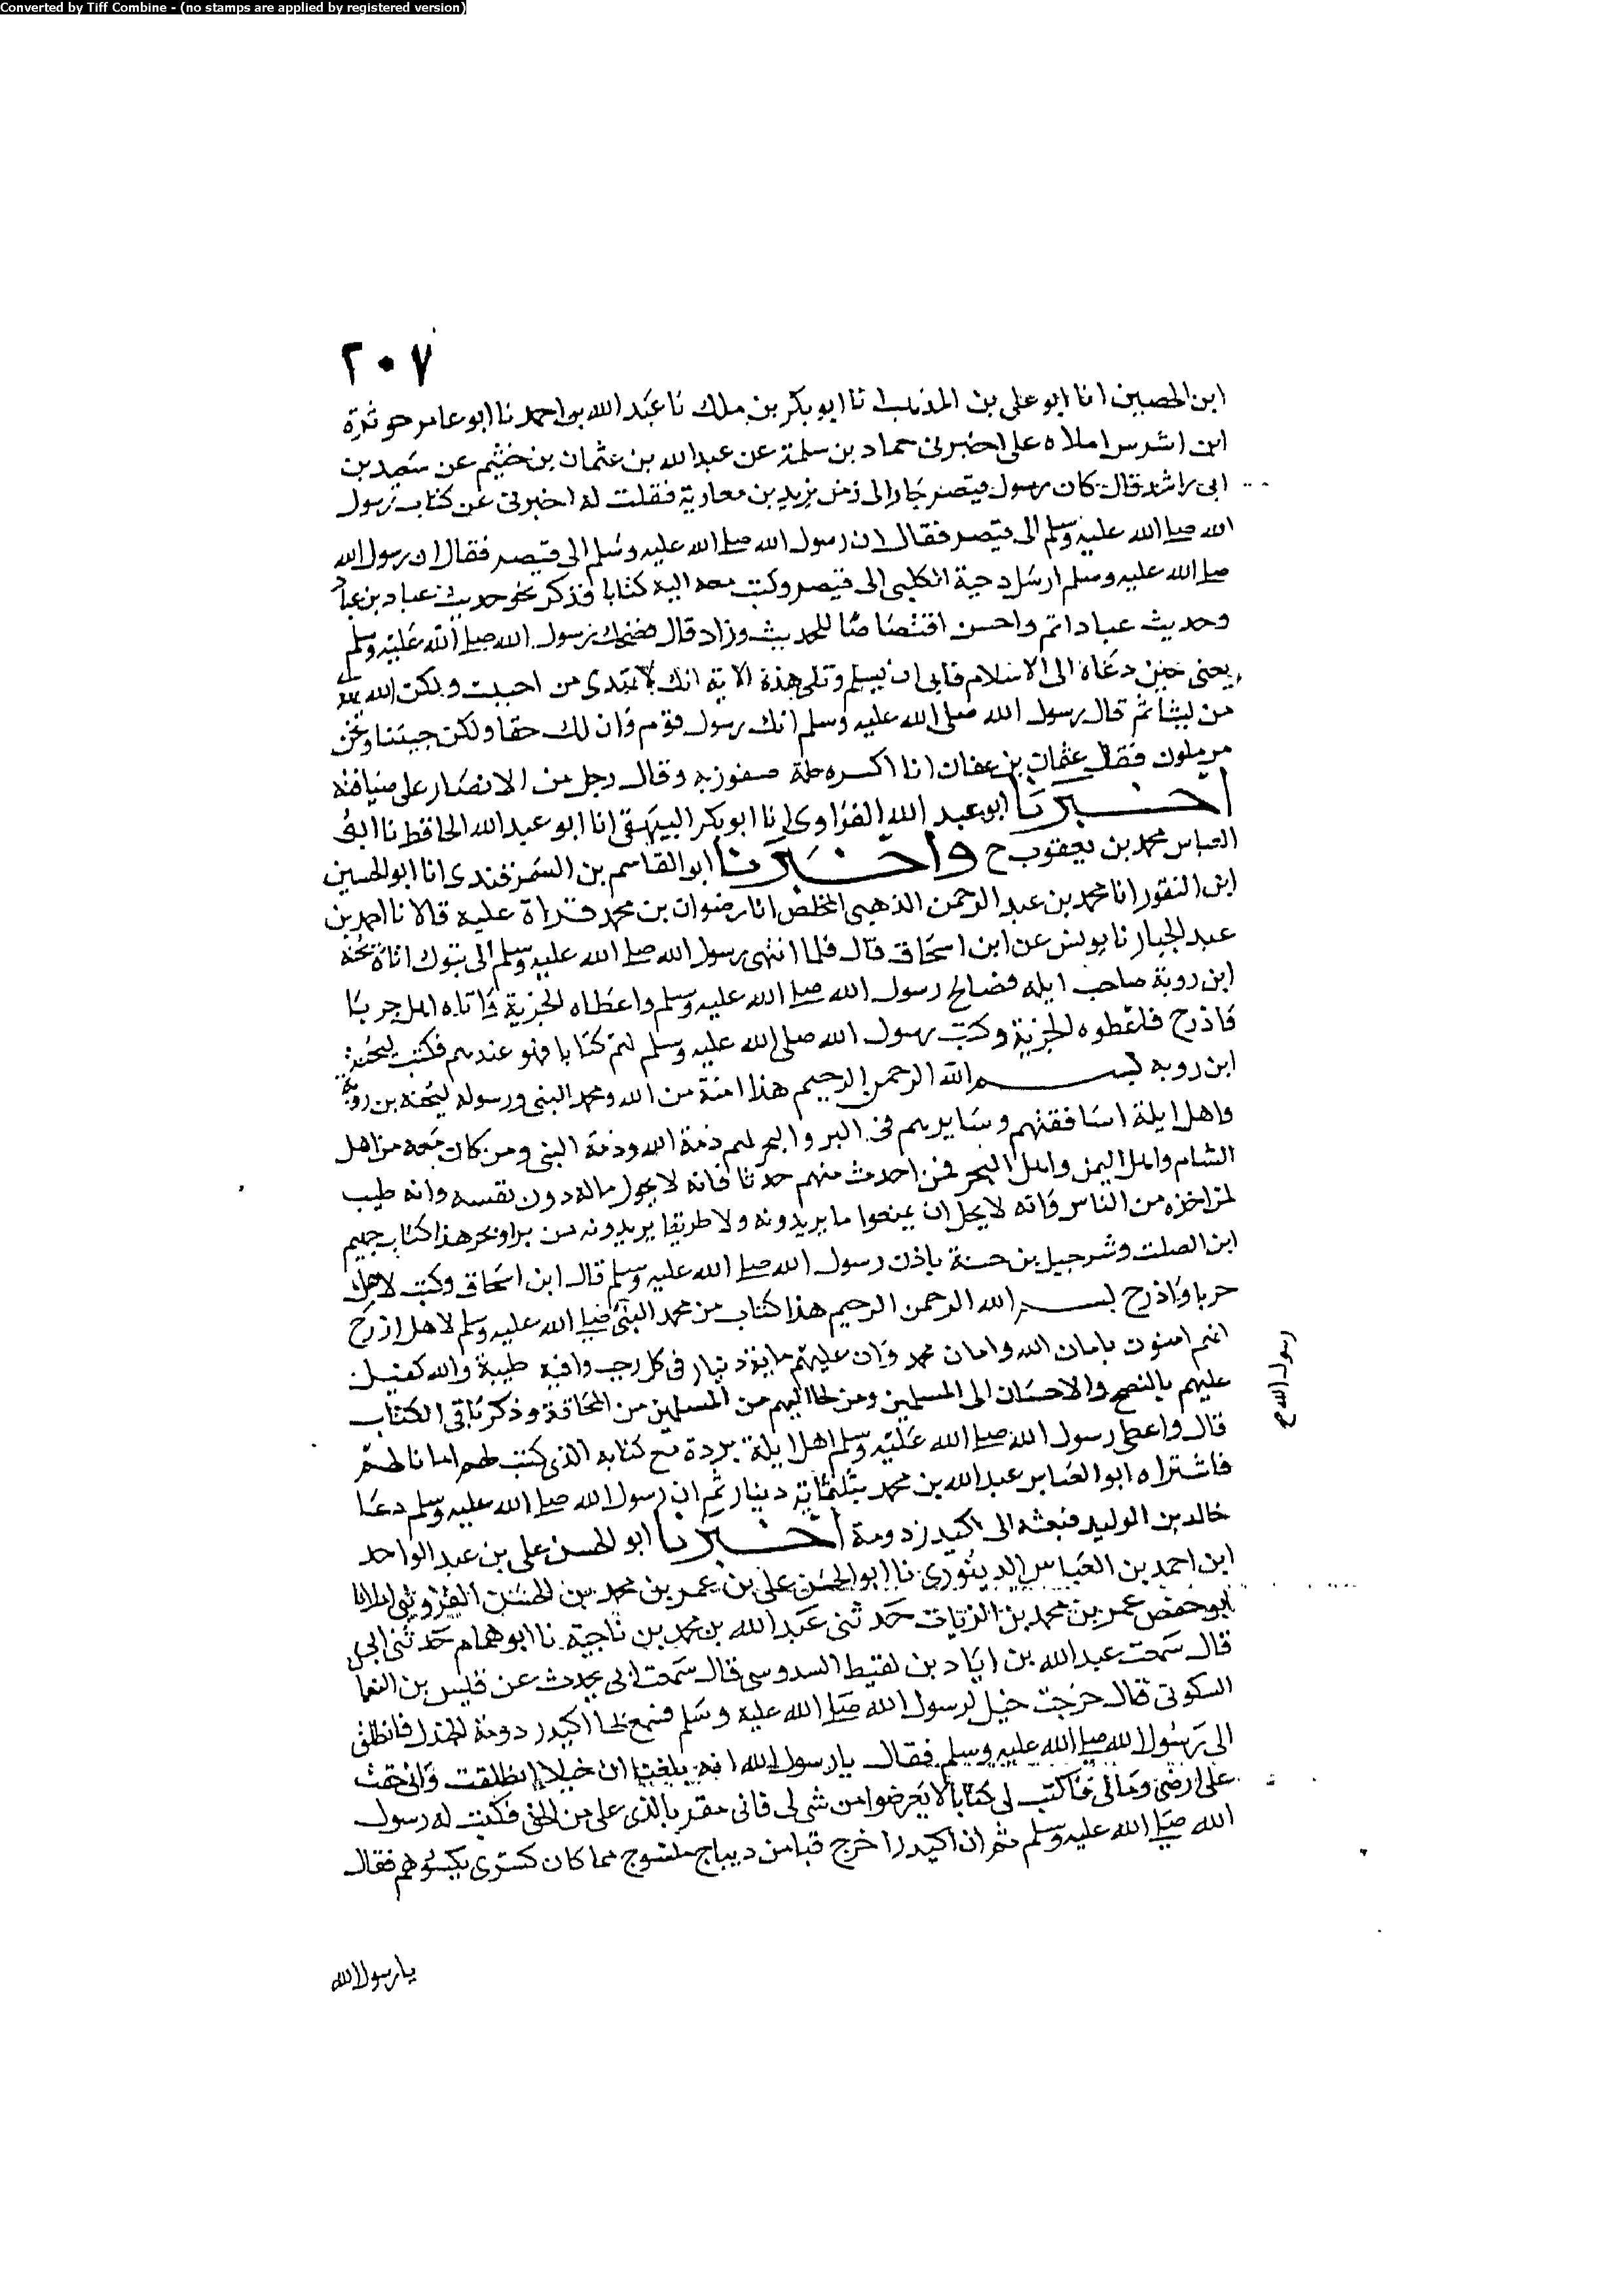 Converted by Tiff Combine - (no stamps are applied by registered version)
٢٠٧
ابن الحصين انا ابو على بن المذهب انا ابو بكر بن ملك نا عبد الله بن احمد نا ابو عامر حوثرة
ابن اشرس املاه على اخبرنى حماد بن سلمة عن عبد الله بن عثمان بن خثيم عن سعيد بن
ابى راشد قال كان رسول قيصر جارا لى زمن يزيد بن معاوية فقلت له اخبرنى عن كتاب رسول
الله صلى الله عليه وسلم الى قيصر فقال ان رسول الله صلى الله عليه وسلم الى قيصر فقال ان رسول الله
صلى الله عليه وسلم ارسل دحية الكلبى الى قيصر وكتب معه اليه كتابا فذكر نحو حديث عباد بن عباد
وحديث عباد اتم واحسن اقتصاصا للحديث وزاد قال فضحك رسول الله صلى الله عليه وسلم
يعنى حين دعاه الى الاسلام فابى ان يسلم وتلى هذه الاية انك لا تهدى من احببت ولكن الله يهدى
من يشا ثم قال رسول الله صلى الله عليه وسلم انك رسول قوم وان لك حقا ولكن جيتنا ونحن
مرملون فقال عثمان بن عفان انا اكسوه حلة صفورية وقال رجل من الانصار على ضيافته
اخبرنا ابو عبد الله الفراوى انا ابو بكر البيهقى انا ابو عبد الله الحافظ نا ابو
العباس محمد بن يعقوب ح واخبرنا ابو القاسم بن السمرقندى انا ابو الحسين
ابن النقور انا محمد بن عبد الرحمن الذهبى المخلص انا رضوان بن محمد قراة عليه قالا نا احمد بن
عبد الجبار نا يونس عن ابن اسحاق قال فلما انتهى رسول الله صلى الله عليه وسلم الى تبوك اتاه يحنه
ابن روبة صاحب ايله فصالح رسول الله صلى الله عليه وسلم واعطاه الجزية واتاه اهل جربا
واذرح فاعطوه الجزية وكتب رسول الله صلى الله عليه وسلم لهم كتابا فهو عندهم فكتب ليحنه
ابن روبه بسم الله الرحمن الرحيم هذا امنة من الله ومحمد النبى ورسوله ليحنه بن روبة
واهل ايلة اساقفتهم وسايرهم فى البر والبحر لهم ذمة الله وذمة النبى ومن كان معه من اهل
الشام واهل اليمن واهل البحر فمن احدث منهم حدثا فانه لا يحول ماله دون نفسه وانه طيب
لمن اخذه من الناس وانه لا يحل ان يمنعوا ما يريدونه ولا طريقا يريدونه من بر او بحر هذا كتاب جهيم
ابن الصلت وشرحبيل بن حسنة باذن رسول الله صلى الله عليه وسلم قال ابن اسحاق وكتب لاهل
جربا واذرح بسم الله الرحمن الرحيم هذا كتاب من محمد النبى صلى الله عليه وسلم لاهل اذرح
انهم امنون بامان الله وامان محمد وان عليهم ماية دينار فى كل رجب وافية طيبة والله كفيل
عليهم بالنصح والاحسان الى المسلمين ومن لجا اليهم من المسلمين من المخافة وذكر باقى الكتاب
قال واعطى رسول الله صلى الله عليه وسلم اهل ايلة بردة مع كتابه الذى كتب لهم امانا لهم
فاشتراه ابو العباس عبد الله بن محمد بثلثماية دينار ثم ان رسول الله صلى الله عليه وسلم دعا
خالد بن الوليد فبعثه الى اكيدر دومة اخبرنا ابو الحسن على بن عبد الواحد
ابن احمد بن العباس الدينورى نا ابو الحسن على بن عمر بن محمد بن الحسن القزوينى املانا
ابو حفص عمر بن محمد بن الزيات حدثنى عبد الله بن محمد بن ناجية نا ابو همام حدثنى ابى
قال سمعت عبد الله بن اياد بن لقيط السدوسى قال سمعت ابى يحدث عن قيس بن النعما
السكونى قال خرجت خيل لرسول الله صلى الله عليه وسلم فسمع بها اكيدر دومة الجندل فانطلق
الى رسول الله صلى الله عليه وسلم فقال يا رسول الله انه بلغنا ان خيلا انطلقت وانى خفت
على ارضى ومالى فاكتب لى كتابا لا يعرضوا من شى لى فانى مقر بالذى على من الحق فكتب له رسول
الله صلى الله عليه وسلم ثم ان اكيدر اخرج قبا من ديباج منسوج مما كان كسرى يكسوهم فقال
يا رسول الله